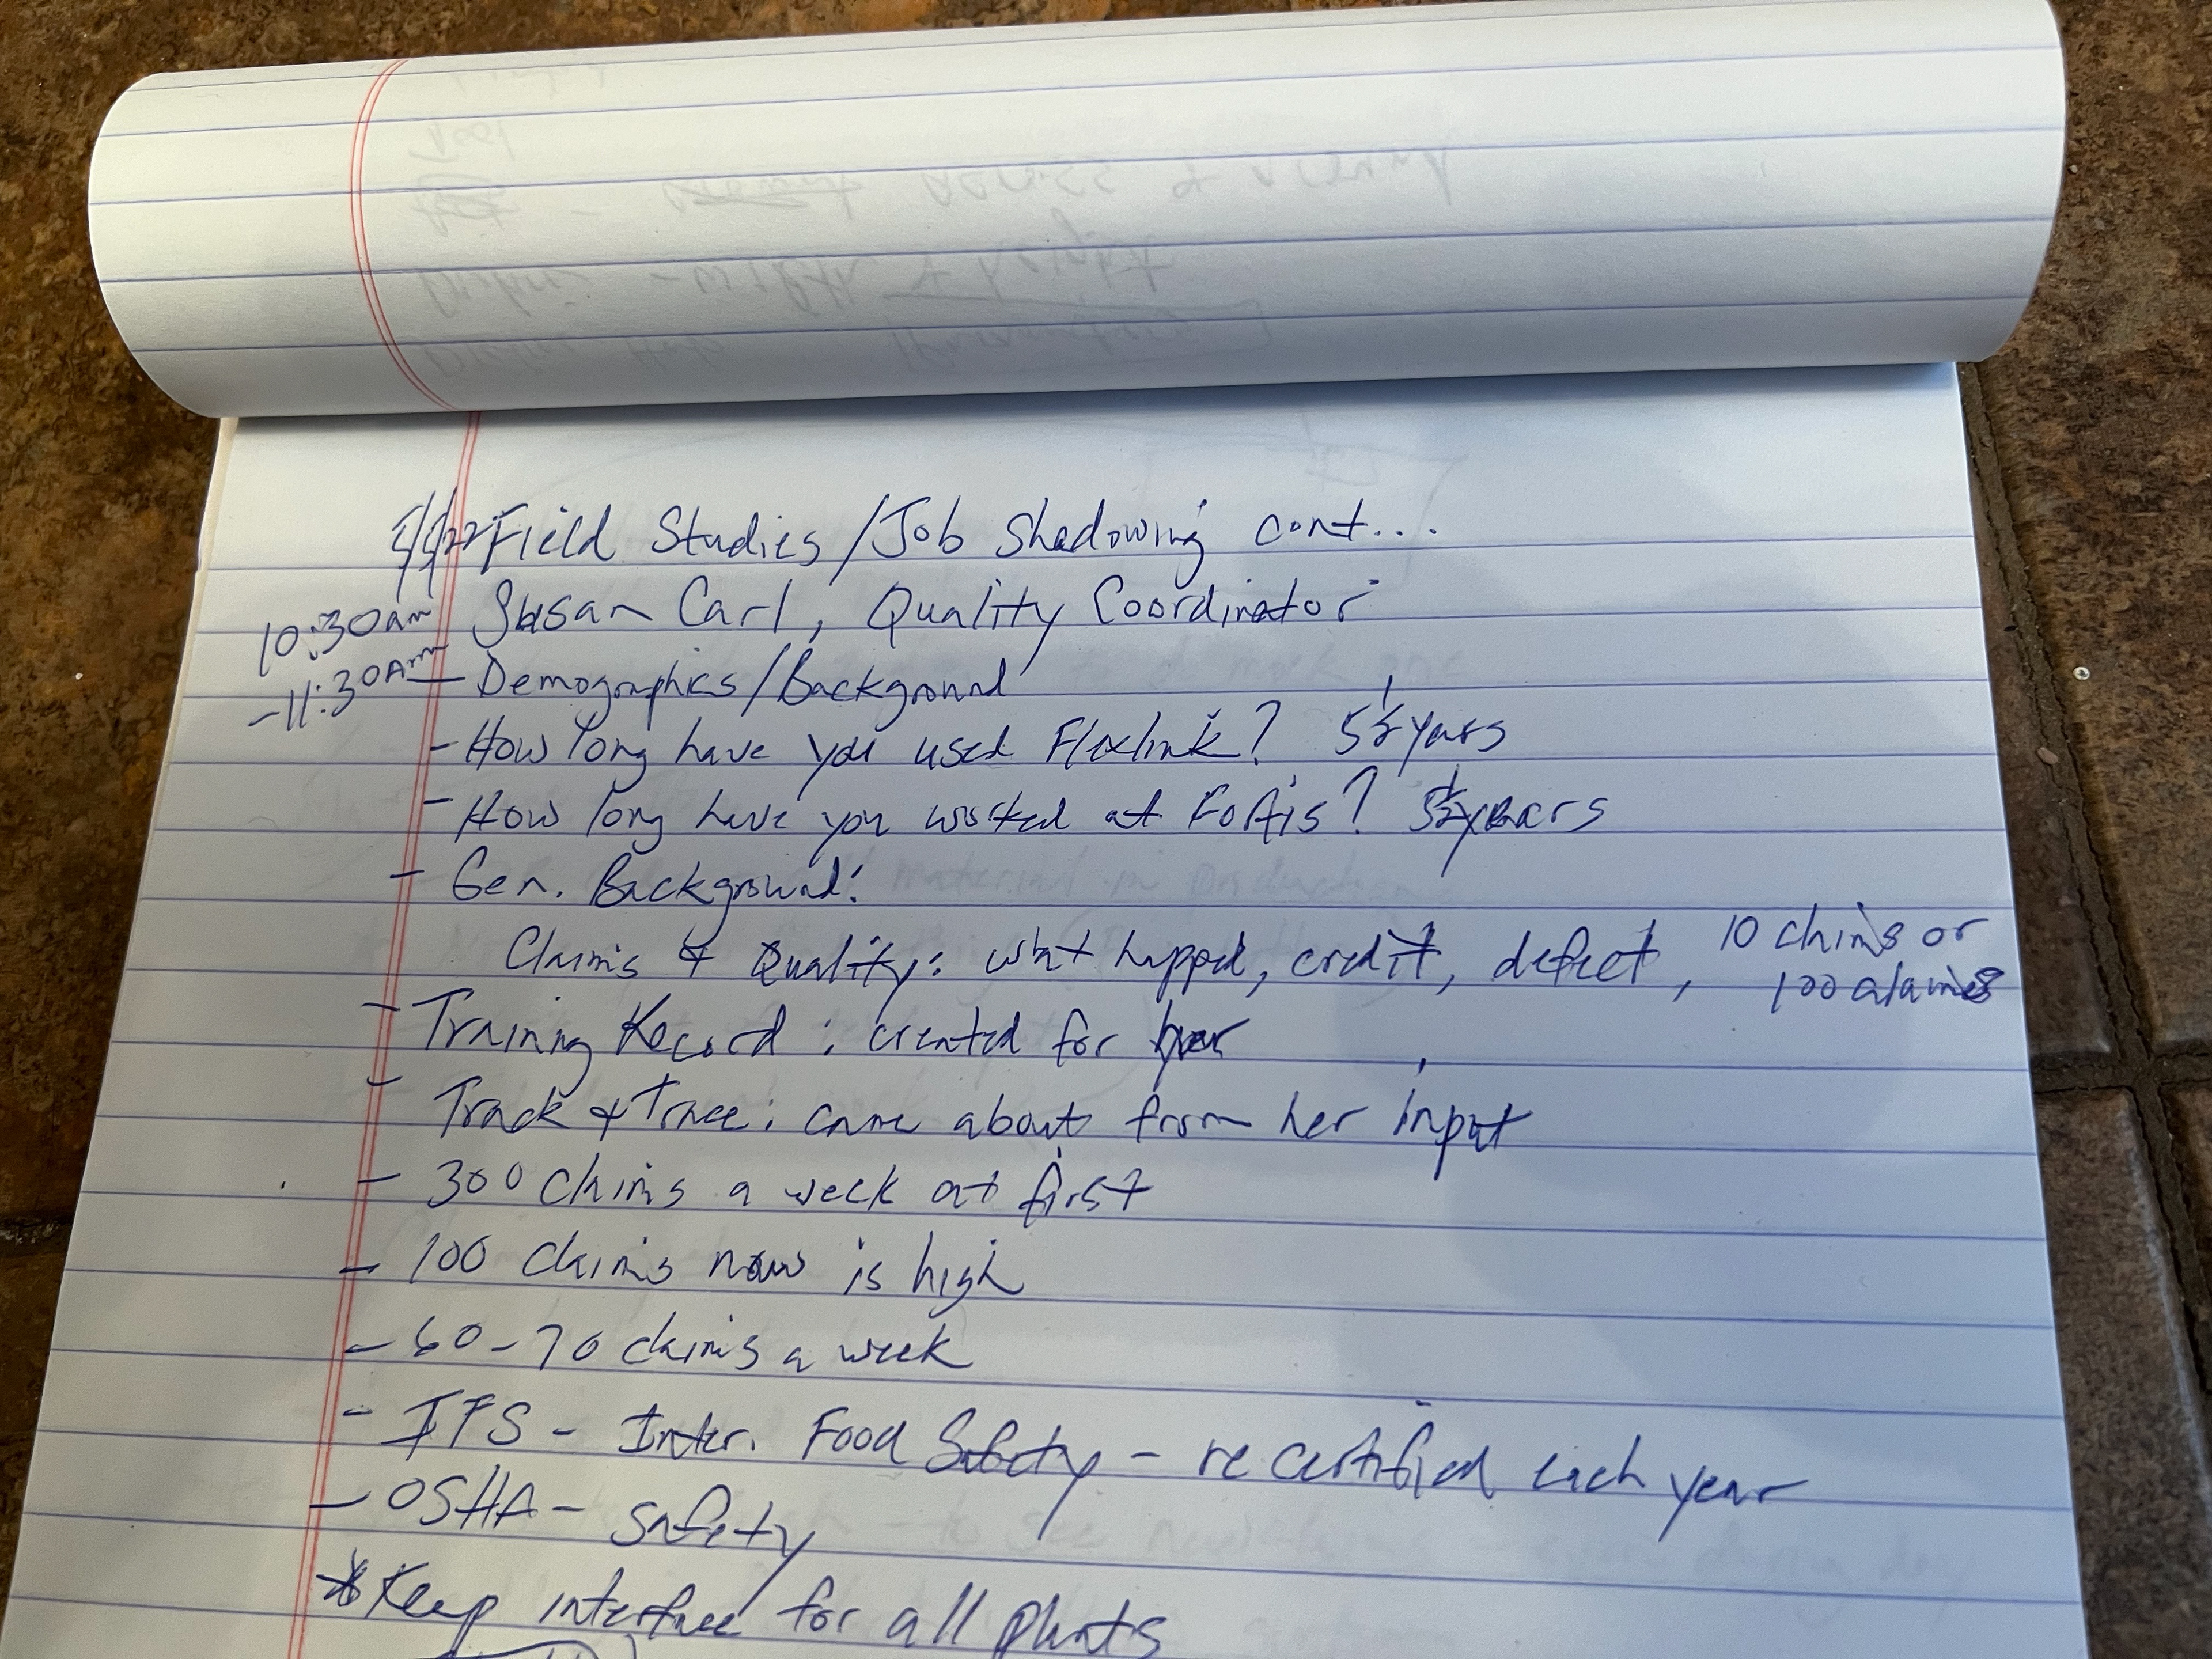 Field Studies / Job Shadowing cont...
10:30am Susan Carl, Quality Coordinator
-11:30Am - Demographics/Background
- How long have you used Flexlink? 5½ years
- How long have you worked at Fortis? 5½ years
- Gen. Background:
Claims & Quality: what happed, credit, defect, 10 claims or
100 claims
- Training Record: created for her
- Track & Trace: came about from her input
- 300 claims a week at first
- 100 claims now is high
- 60-70 claims a week
- IFS - Inter. Food Safety - recertified each year
- OSHA - safety
* Keep interface for all plants